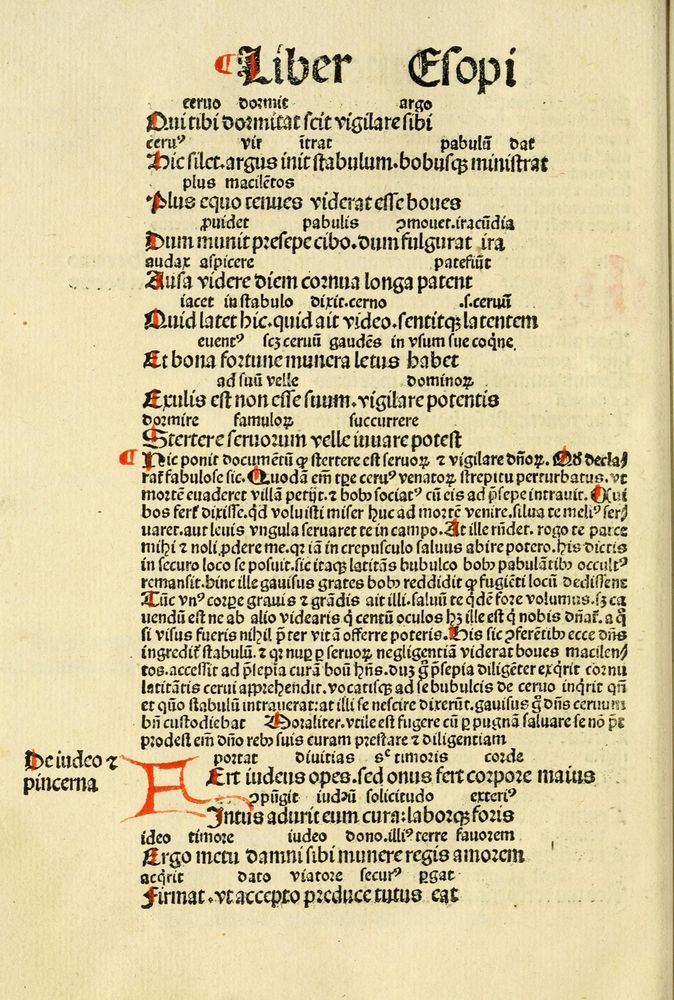 ¶Liber Esopi
ceruo dormit argo
Qui tibi dormitat scit vigilare sibi
ceruꝰ vir ītrat pabulū dat
Hic silet.argus init stabulum.bobusqꝫ ministrat
plus macilētos
Plus equo tenues viderat esse boues
ꝓuidet pabulis ꝯmouet.iracūdia
Dum munit presepe cibo.dum fulgurat ira
audax aspicere patefiūt
Ausa videre diem cornua longa patent
iacet in stabulo dixit.cerno .s.ceruū
Quid latet hic.quid ait video.sentitqꝫ latentem
euentꝰ scꝫ ceruū gaudēs in vsum sue coq̄ne
Et bona fortune munera letus habet
ad suū velle dominoꝝ
Exulis est non esse suum.vigilare potentis
dormire famuloꝝ succurrere
Stertere seruorum velle iuuare potest
¶ Hic ponit documētū ꝙ stertere est seruoꝝ ⁊ vigilare dn̄oꝝ. Qđ decla/
rat̄ fabulose sic. Quodā em̄ tꝑe ceruꝰ venatoꝝ strepitu perturbatus.vt
mortē euaderet villā petijt.⁊ bobꝰ sociatꝰ cū eis ad p̄sepe intrauit. Cui
bos fert̄ dixisse.qđ voluisti miser huc ad mortē venire.silua te meliꝰ ser/
uaret.aut leuis vngula seruaret te in campo. At ille rn̄det. rogo te parce
mihi ⁊ noli ꝓdere me.qꝛ iā in crepusculo saluus abire potero.his dictis
in securo loco se posuit.sic itaqꝫ latitās bubulco bobꝰ pabulātibꝰ occultꝰ
remansit.hinc ille gauisus grates bobꝰ reddidit ꝙ fugiēti locū dedissent
Tūc vnꝰ corꝑe grauis ⁊ grādis ait illi.saluū te qͥdē fore volumus.sꝫ ca
uendū est ne ab alio videaris qͥ centū oculos hꝫ ille est qͥ nobis dn̄at̄. a qͦ
si visus fueris nihil p̄ter vitā offerre poteris. His sic ꝯferētibꝰ ecce dn̄s
ingredit̄ stabulū.⁊ qꝛ nuꝑ ꝑ seruoꝝ negligentiā viderat boues macilen/
tos.accessit ad p̄sepia curā boū hn̄s. dūqꝫ gͦ p̄sepia diligēter exqͥrit cornu
latitātis cerui apprehendit.vocatisqꝫ ad se bubulcis de ceruo inqͥrit qn̄
et quo stabulū intrauerat:at illi se nescire dixerūt.gauisus gͦ dn̄s ceruum
bn̄ custodiebat Moraliter.vtile est fugere cū ꝑ pugnā saluare se nō pt̄
prodest em̄ dn̄o rebꝰ suis curam prestare ⁊ diligentiam
De iudeo ⁊
pincerna
portat diuitias sͨ timoris corde
FErt iudeus opes.sed onus fert corpore maius
ꝯpūgit iudeū solicitudo exteriꝰ
Intus adurit eum cura:laborqꝫ foris
ideo timore iudeo dono.illiꝰ terre fauorem
Ergo metu damni sibi munere regis amorem
acqͥrit dato viatore securꝰ ꝑgat
Firmat.vt accepto preduce tutus eat